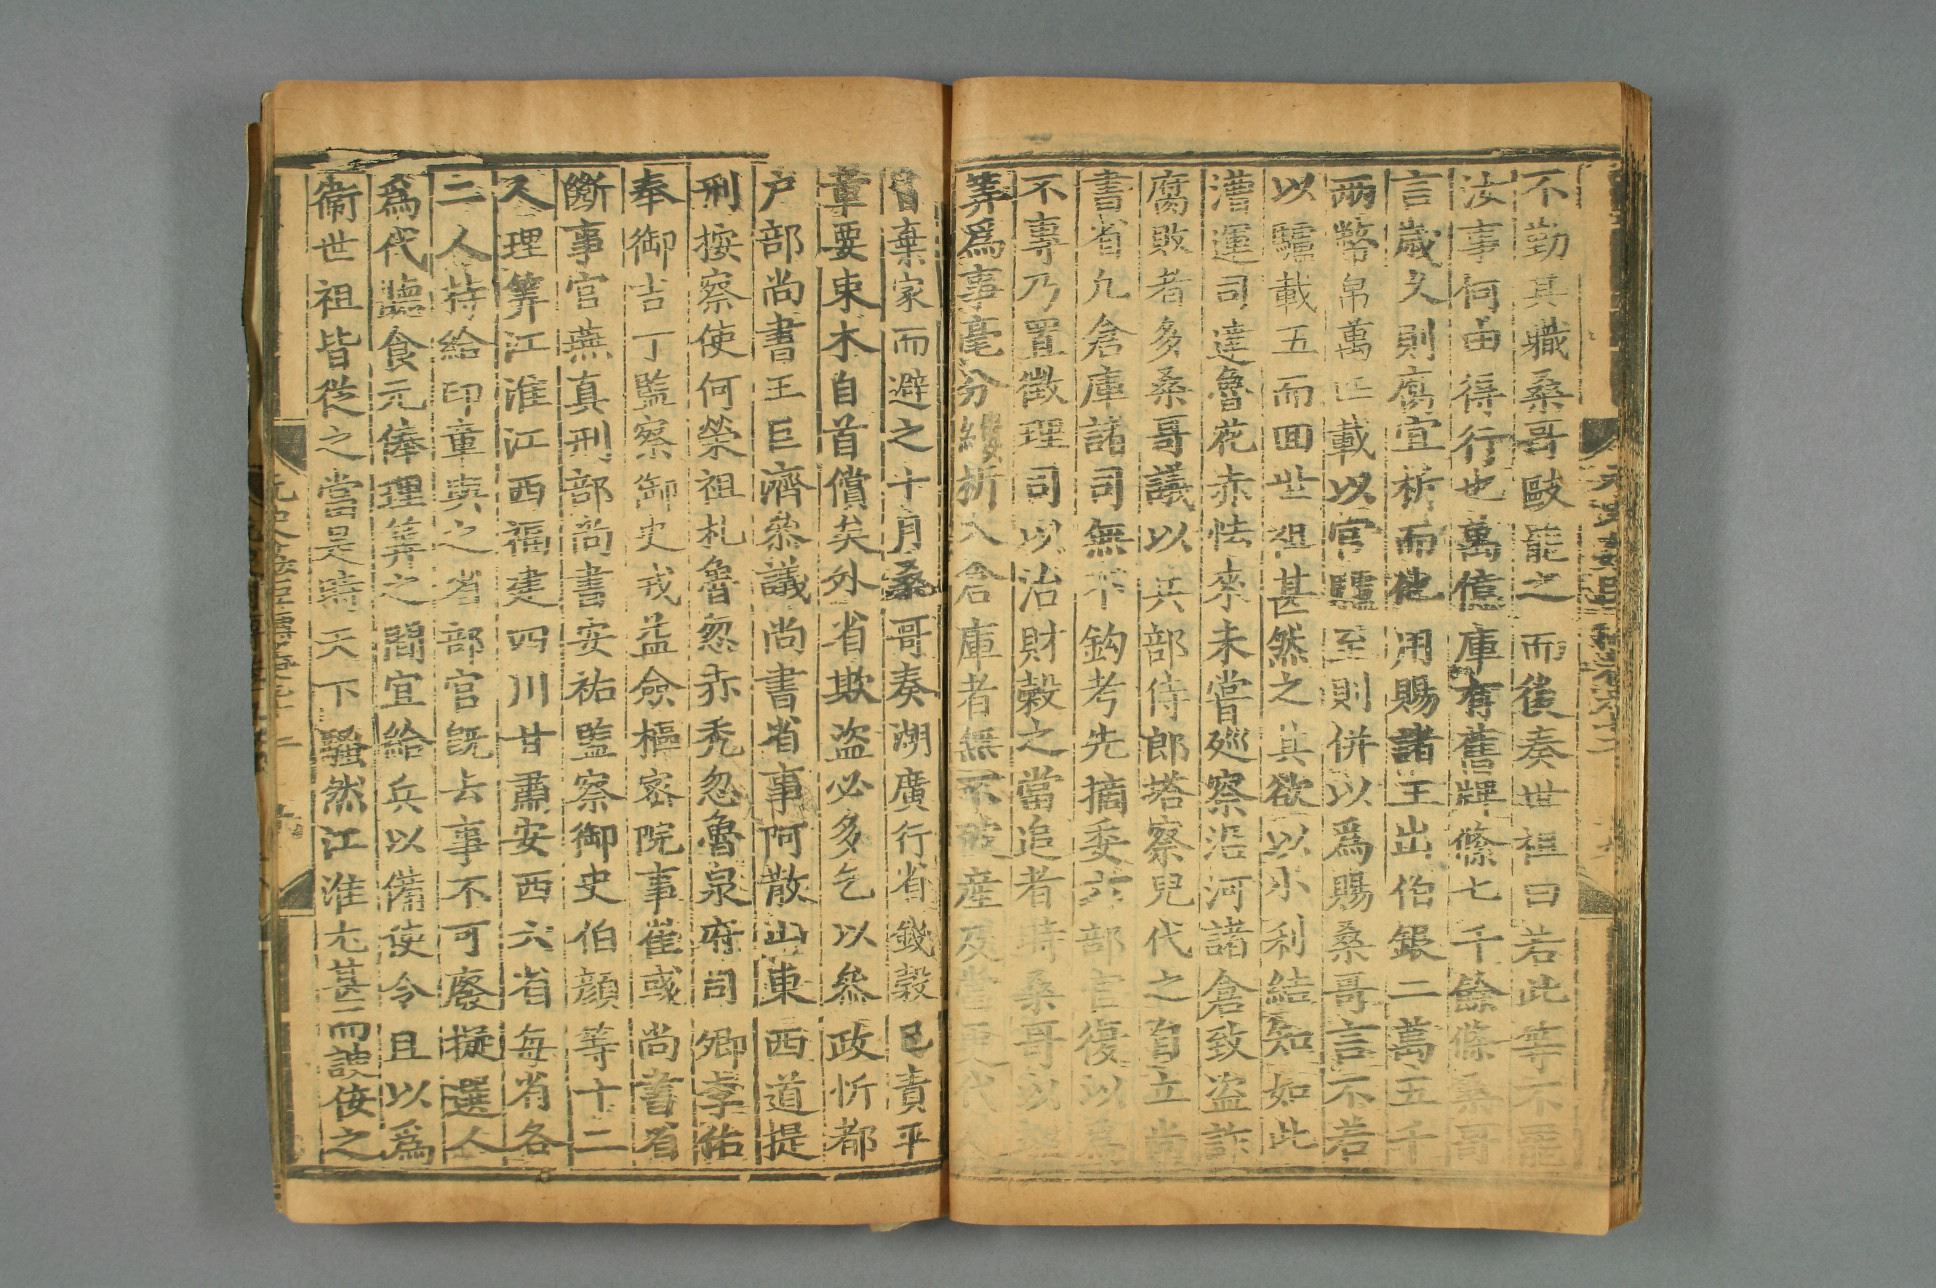 不勤其職桑哥敺罷之而後奏世祖曰若此等不罷
汝事何由得行也萬億庫有舊牌條七千餘條桑哥
言歲久則腐宜析而他用賜諸王出伯銀二萬五千
兩幣帛萬匹載以官驢至則併以為賜桑哥言不若
以驢載玉而回世祖甚然之其欲以小利結知如此
漕運司達魯花赤怯來未嘗廵察沿河諸倉致盗詐
腐敗者多桑哥議以兵部侍郎塔察兒代之自立尚
書省凢倉庫諸司無不鈎考先摘委六部官復以為
不專乃置徵理司以治財榖之當追者時桑哥以理
筭為事毫分縷析入倉庫者無不破產及當更代人
皆棄家而避之十月桑哥奏湖廣行省錢榖已責平
章要束木自首償矣外省欺盗必多乞以叅政忻都
户部尚書王巨濟叅議尚書省事阿散山東西道提
刑按察使何榮祖札魯忽赤禿忽魯泉府司卿李佑
奉御吉丁監察御史戎益僉樞密院事崔彧尚書省
斷事官燕真刑部尚書安祐監察御史伯顏等十二
人理筭江淮江西福建四川甘肅安西六省每省各
二人特給印章與之省部官旣去事不可廢擬選人
為代聽食元俸理筭之間宜給兵以備使令且以為
衞世祖皆從之當是時天下騷然江淮尤甚而諛佞之